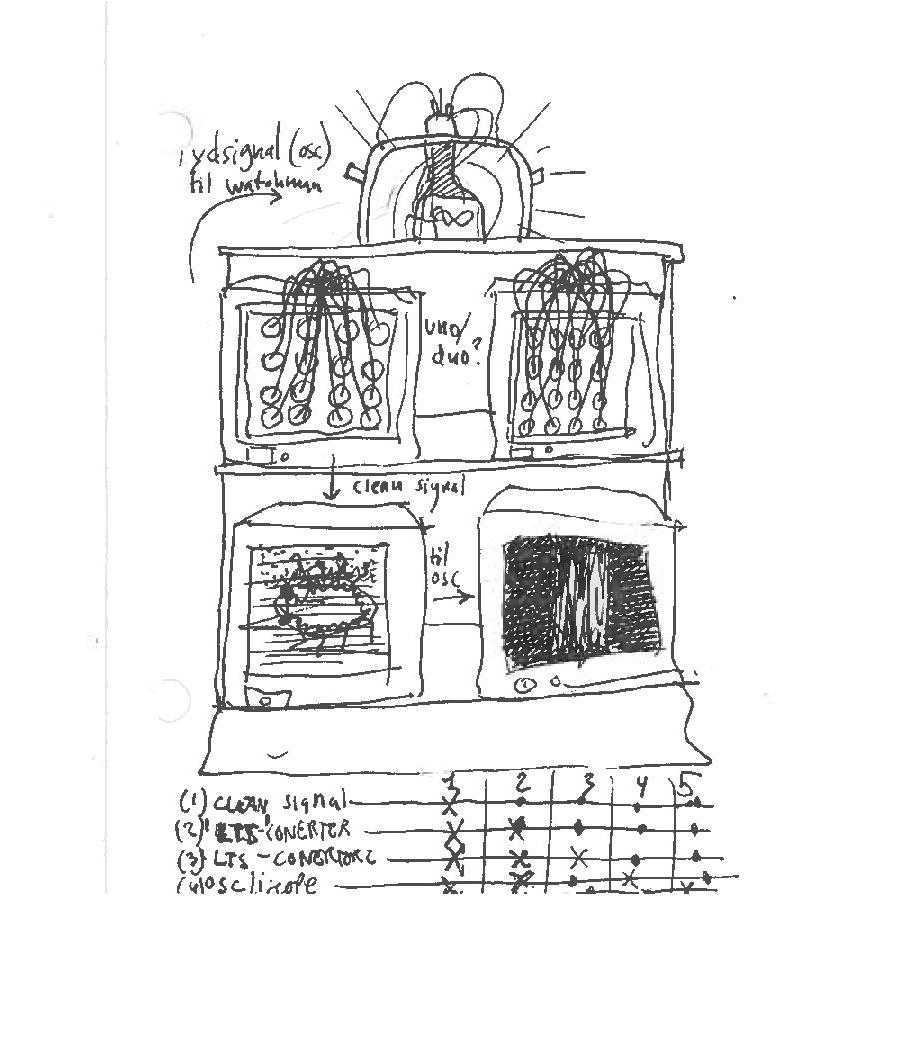 ydsignal (osc)
til watchman
uno/
duo?
clean signal
til
osc
1 2 3 4 5
(1) CLEAN signal
(2) LTS-CONERTER
(3) LTS-CONERTORE
osclirope